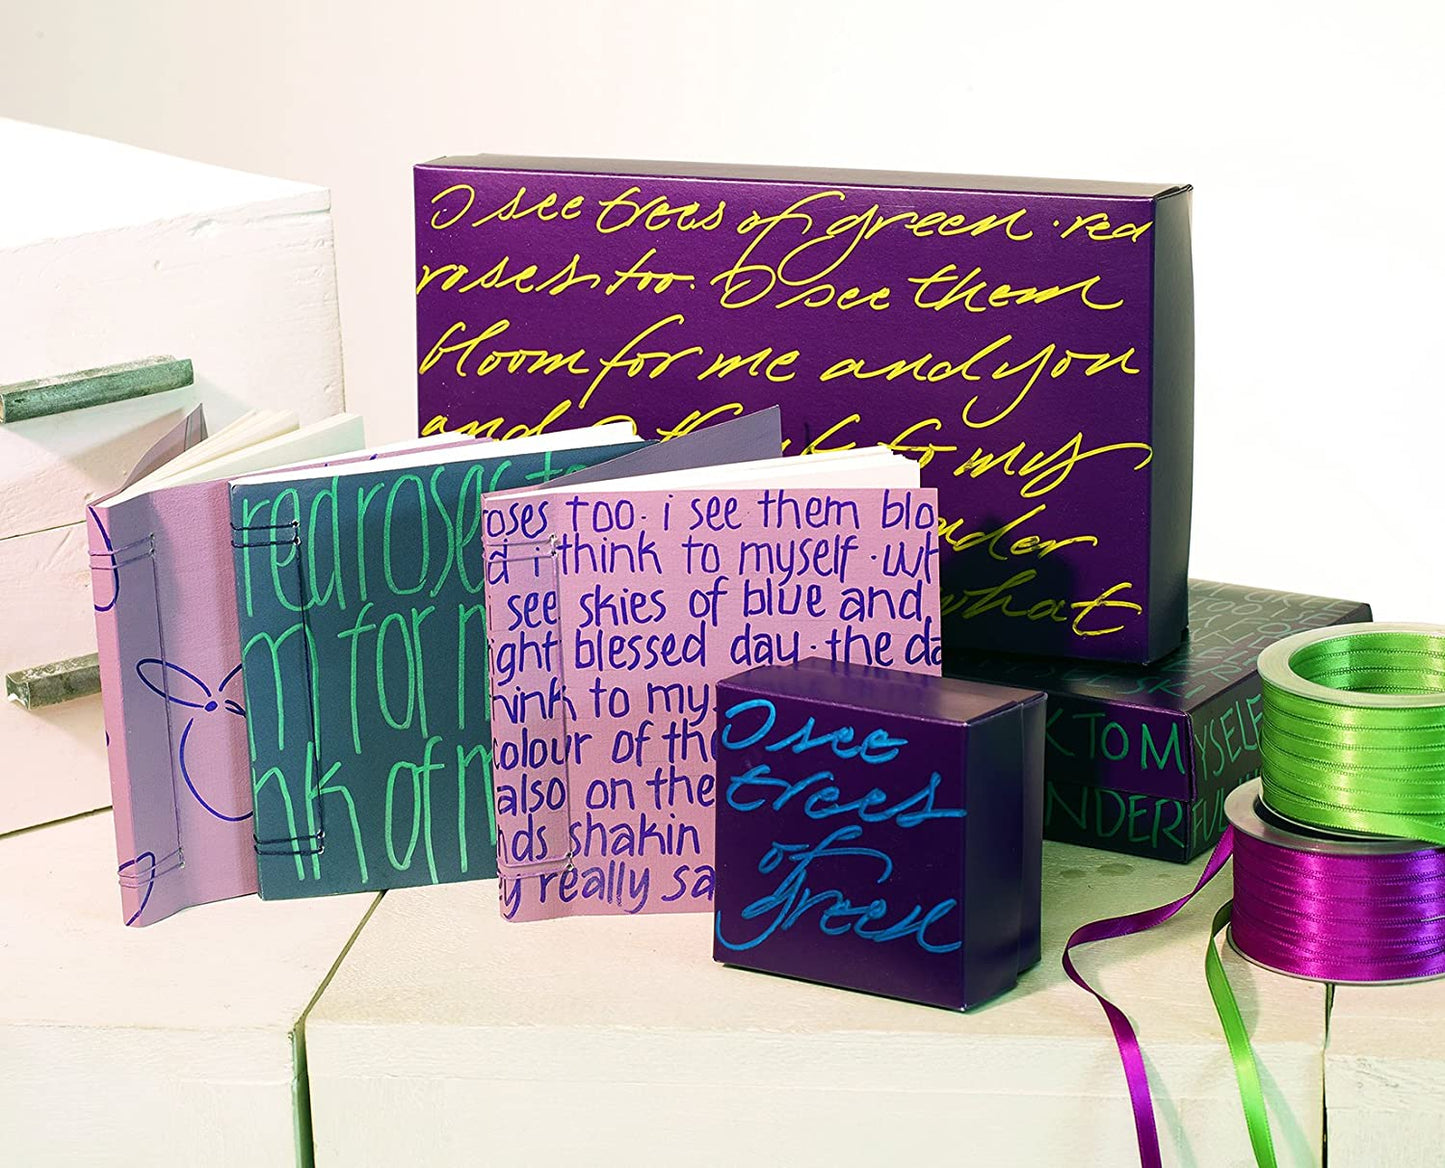 I see trees of green · red
roses too · I see them
bloom for me and you
and to my
what
red roses to
m for m
nk of m
oses too · i see them blo
d i think to myself · wh
i see skies of blue and
ight blessed day · the da
hink to mys
colour of the
also on the
nds shakin
ey really sa
I see
trees
of
green
K TO MYSELF
NDERFUL